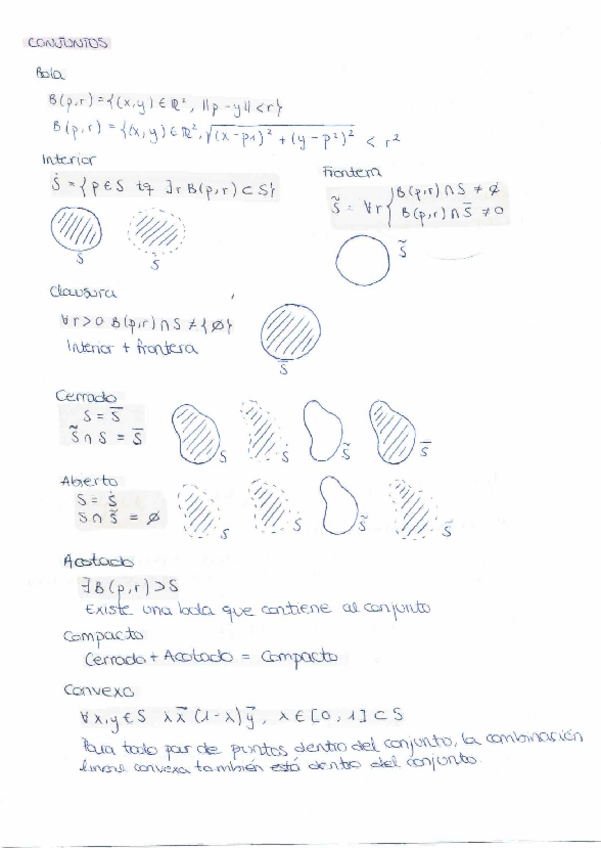 CONJUNTOS
Bola
B(p,r)={(x,y) ∈ ℝ², ||p-y|| < r}
B(p,r)={(x,y) ∈ ℝ², √((x-p1)² + (y-p²)²) < r²
Interior
Ṡ = {p ∈ S tq ∃r B(p,r) ⊂ S}
Ṡ
Ṡ
Frontera
S̃ = ∀r { B(p,r) ∩ S ≠ ∅
B(p,r) ∩ S̅ ≠ 0
S̃
Clausura
∀r>0 B(p,r) ∩ S ≠ {∅}
Interior + frontera
S̅
Cerrado
S = S̅
S̃ ∩ S = S̅
S
Ṡ
S̃
S̅
Abierto
S = Ṡ
S ∩ S̃ = ∅
S
Ṡ
S̃
S̅
Acotado
∃B(p,r) > S
Existe una bola que contiene al conjunto
Compacto
Cerrado + Acotado = Compacto
Convexo
∀x,y ∈ S λx⃗ (1-λ)y⃗, λ ∈ [0,1] ⊂ S
Para todo par de puntos dentro del conjunto, la combinación
lineal convexa también está dentro del conjunto.